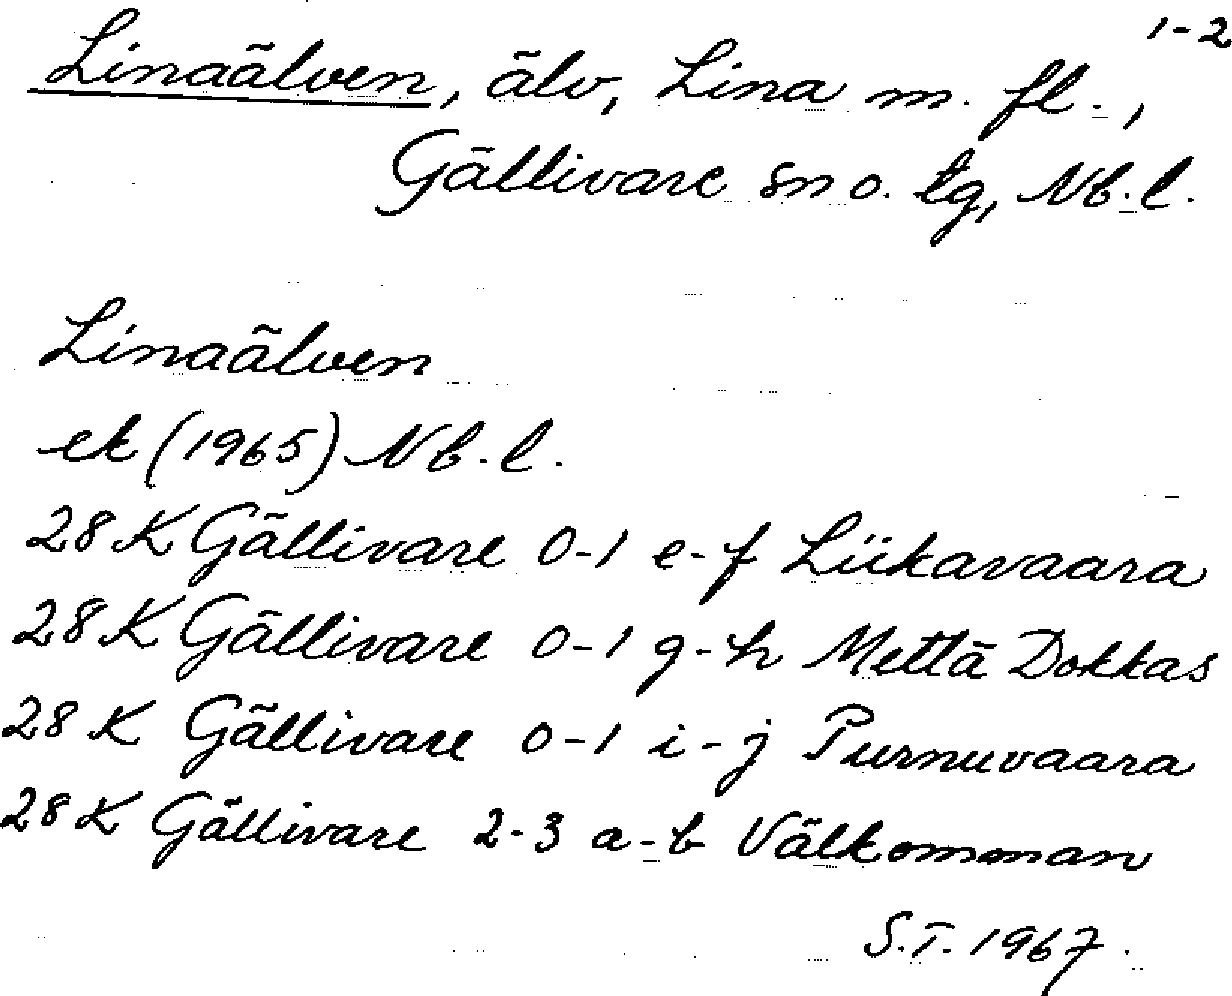 1-2
Linaälven, älv, Lina m. fl.,
Gällivare sn o. tg, Nb. l.
Linaälven
ek (1965) Nb. l.
28 K Gällivare 0-1 e-f Liikavaara
28 K Gällivare 0-1 g-h Mettä Dokkas
28 K Gällivare 0-1 i-j Purnuvaara
28 K Gällivare 2-3 a-b Välkomman
S.T. 1967.